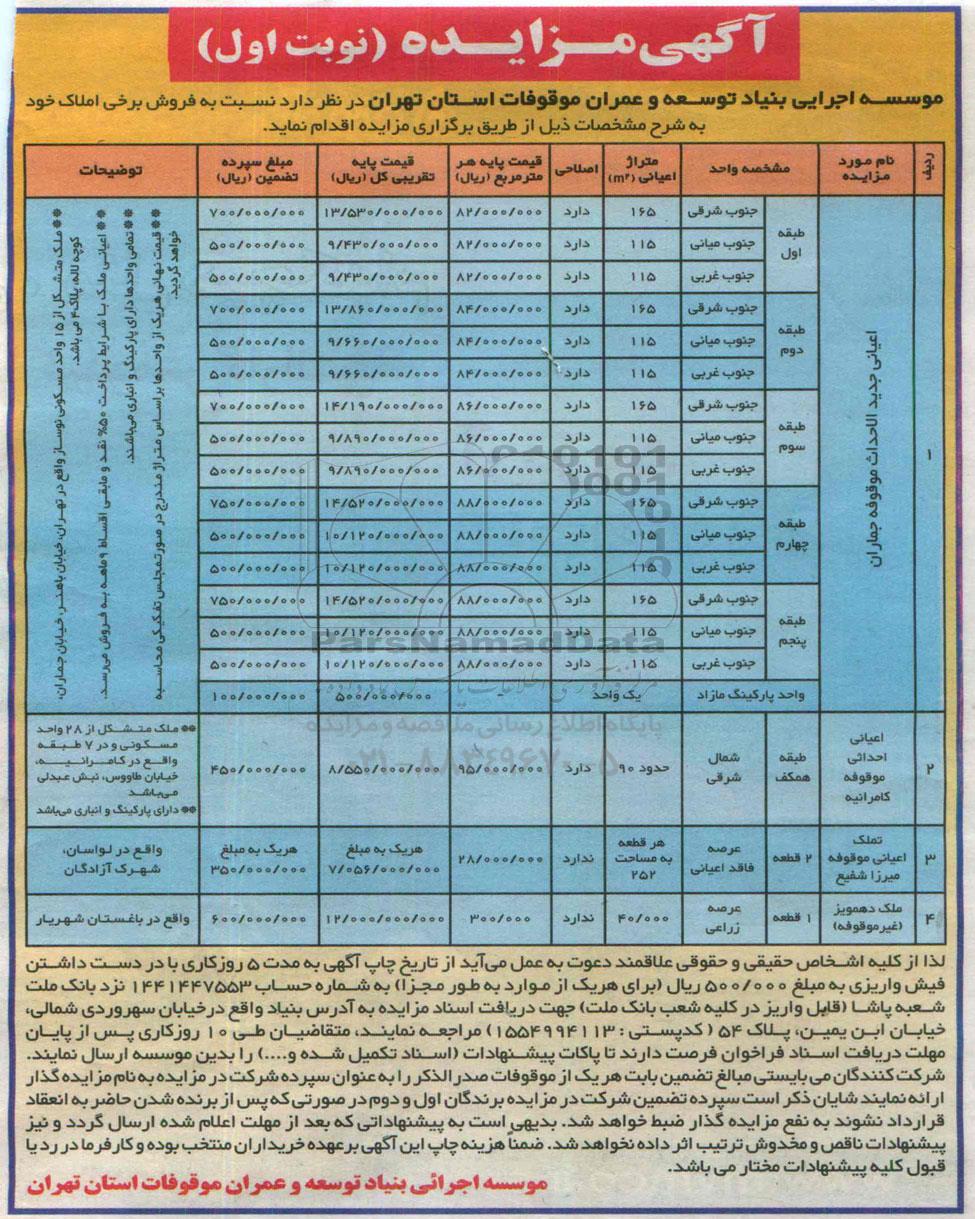 آگهی مزایده (نوبت اول)
موسسه اجرایی بنیاد توسعه و عمران موقوفات استان تهران در نظر دارد نسبت به فروش برخی املاک خود
به شرح مشخصات ذیل از طریق برگزاری مزایده اقدام نماید.
ردیف | نام مورد مزایده | مشخصه واحد | متراژ اعیانی (m²) | اصلاحی | قیمت پایه هر مترمربع (ریال) | قیمت پایه تقریبی کل (ریال) | مبلغ سپرده تضمین (ریال) | توضیحات
۱ | اعیانی جدید الاحداث موقوفه جماران
طبقه اول | جنوب شرقی | ۱۶۵ | دارد | ۸۲/۰۰۰/۰۰۰ | ۱۳/۵۳۰/۰۰۰/۰۰۰ | ۷۰۰/۰۰۰/۰۰۰
جنوب میانی | ۱۱۵ | دارد | ۸۲/۰۰۰/۰۰۰ | ۹/۴۳۰/۰۰۰/۰۰۰ | ۵۰۰/۰۰۰/۰۰۰
جنوب غربی | ۱۱۵ | دارد | ۸۲/۰۰۰/۰۰۰ | ۹/۴۳۰/۰۰۰/۰۰۰ | ۵۰۰/۰۰۰/۰۰۰
طبقه دوم | جنوب شرقی | ۱۶۵ | دارد | ۸۴/۰۰۰/۰۰۰ | ۱۳/۸۶۰/۰۰۰/۰۰۰ | ۷۰۰/۰۰۰/۰۰۰
جنوب میانی | ۱۱۵ | دارد | ۸۴/۰۰۰/۰۰۰ | ۹/۶۶۰/۰۰۰/۰۰۰ | ۵۰۰/۰۰۰/۰۰۰
جنوب غربی | ۱۱۵ | دارد | ۸۴/۰۰۰/۰۰۰ | ۹/۶۶۰/۰۰۰/۰۰۰ | ۵۰۰/۰۰۰/۰۰۰
طبقه سوم | جنوب شرقی | ۱۶۵ | دارد | ۸۶/۰۰۰/۰۰۰ | ۱۴/۱۹۰/۰۰۰/۰۰۰ | ۷۰۰/۰۰۰/۰۰۰
جنوب میانی | ۱۱۵ | دارد | ۸۶/۰۰۰/۰۰۰ | ۹/۸۹۰/۰۰۰/۰۰۰ | ۵۰۰/۰۰۰/۰۰۰
جنوب غربی | ۱۱۵ | دارد | ۸۶/۰۰۰/۰۰۰ | ۹/۸۹۰/۰۰۰/۰۰۰ | ۵۰۰/۰۰۰/۰۰۰
طبقه چهارم | جنوب شرقی | ۱۶۵ | دارد | ۸۸/۰۰۰/۰۰۰ | ۱۴/۵۲۰/۰۰۰/۰۰۰ | ۷۵۰/۰۰۰/۰۰۰
جنوب میانی | ۱۱۵ | دارد | ۸۸/۰۰۰/۰۰۰ | ۱۰/۱۲۰/۰۰۰/۰۰۰ | ۵۰۰/۰۰۰/۰۰۰
جنوب غربی | ۱۱۵ | دارد | ۸۸/۰۰۰/۰۰۰ | ۱۰/۱۲۰/۰۰۰/۰۰۰ | ۵۰۰/۰۰۰/۰۰۰
طبقه پنجم | جنوب شرقی | ۱۶۵ | دارد | ۸۸/۰۰۰/۰۰۰ | ۱۴/۵۲۰/۰۰۰/۰۰۰ | ۷۵۰/۰۰۰/۰۰۰
جنوب میانی | ۱۱۵ | دارد | ۸۸/۰۰۰/۰۰۰ | ۱۰/۱۲۰/۰۰۰/۰۰۰ | ۵۰۰/۰۰۰/۰۰۰
جنوب غربی | ۱۱۵ | دارد | ۸۸/۰۰۰/۰۰۰ | ۱۰/۱۲۰/۰۰۰/۰۰۰ | ۵۰۰/۰۰۰/۰۰۰
واحد پارکینگ مازاد | یک واحد | ۵۰۰/۰۰۰/۰۰۰ | ۱۰۰/۰۰۰/۰۰۰
** ملک متشکل از ۱۵ واحد مسکونی نوساز واقع در تهران، خیابان باهنر، خیابان جماران،
کوچه لاله، پلاک ۴ می باشد.
** اعیانی ملک با شرایط پرداخت ۵۰% نقد و مابقی اقساط ۹ ماهه به فروش می‌رسد.
** تمامی واحدها دارای پارکینگ و انباری می‌باشند.
** قیمت نهائی هریک از واحدها براساس متراژ مندرج در صورتمجلس تفکیکی محاسبه
خواهد گردید.
۲ | اعیانی احداثی موقوفه کامرانیه | طبقه همکف | شمال شرقی | حدود ۹۰ | دارد | ۹۵/۰۰۰/۰۰۰ | ۸/۵۵۰/۰۰۰/۰۰۰ | ۴۵۰/۰۰۰/۰۰۰
** ملک متشکل از ۲۸ واحد
مسکونی و در ۷ طبقه
واقع در کامرانیه،
خیابان طاووس، نبش عبدلی
می‌باشد
** دارای پارکینگ و انباری می‌باشد
۳ | تملک اعیانی موقوفه میرزا شفیع | ۲ قطعه | عرصه فاقد اعیانی | هر قطعه به مساحت ۲۵۲ | ندارد | ۲۸/۰۰۰/۰۰۰ | هریک به مبلغ ۷/۰۵۶/۰۰۰/۰۰۰ | هریک به مبلغ ۳۵۰/۰۰۰/۰۰۰ | واقع در لواسان، شهرک آزادگان
۴ | ملک دهمویز (غیرموقوفه) | ۱ قطعه | عرصه زراعی | ۴۰/۰۰۰ | ندارد | ۳۰۰/۰۰۰ | ۱۲/۰۰۰/۰۰۰/۰۰۰ | ۶۰۰/۰۰۰/۰۰۰ | واقع در باغستان شهریار
ParsNamadData
پایگاه اطلاع رسانی مناقصه و مزایده
۰۲۱-۸۸۳۴۹۶۷۰-۵
لذا از کلیه اشخاص حقیقی و حقوقی علاقمند دعوت به عمل می‌آید از تاریخ چاپ آگهی به مدت ۵ روزکاری با در دست داشتن
فیش واریزی به مبلغ ۵۰۰/۰۰۰ ریال (برای هریک از موارد به طور مجزا) به شماره حساب ۱۴۴۱۴۴۷۵۵۳ نزد بانک ملت
شعبه پاشا (قابل واریز در کلیه شعب بانک ملت) جهت دریافت اسناد مزایده به آدرس بنیاد واقع درخیابان سهروردی شمالی،
خیابان ابن یمین، پلاک ۵۴ (کدپستی: ۱۵۵۴۹۹۴۱۱۳) مراجعه نمایند، متقاضیان طی ۱۰ روزکاری پس از پایان
مهلت دریافت اسناد فراخوان فرصت دارند تا پاکات پیشنهادات (اسناد تکمیل شده و....) را بدین موسسه ارسال نمایند.
شرکت کنندگان می بایستی مبالغ تضمین بابت هر یک از موقوفات صدرالذکر را به عنوان سپرده شرکت در مزایده به نام مزایده گذار
ارائه نمایند شایان ذکر است سپرده تضمین شرکت در مزایده برندگان اول و دوم در صورتی که پس از برنده شدن حاضر به انعقاد
قرارداد نشوند به نفع مزایده گذار ضبط خواهد شد. بدیهی است به پیشنهاداتی که بعد از مهلت اعلام شده ارسال گردد و نیز
پیشنهادات ناقص و مخدوش ترتیب اثر داده نخواهد شد. ضمناً هزینه چاپ این آگهی برعهده خریداران منتخب بوده و کارفرما در رد یا
قبول کلیه پیشنهادات مختار می باشد.
موسسه اجرائی بنیاد توسعه و عمران موقوفات استان تهران